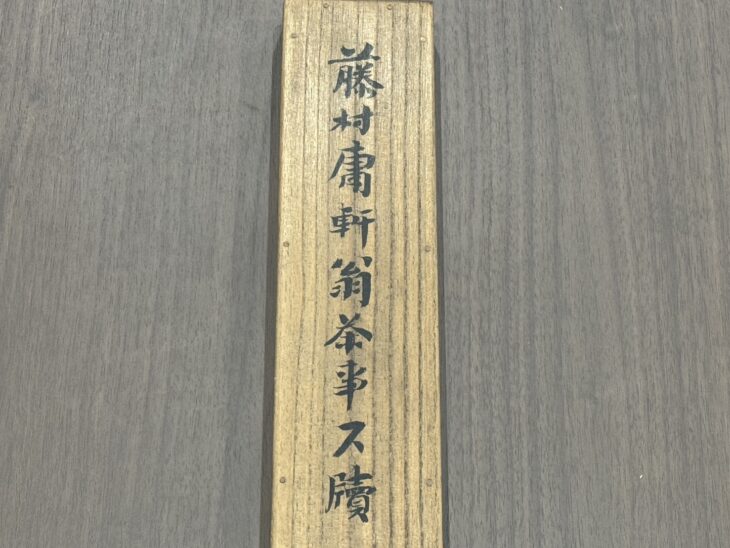 藤村庸軒翁茶事尺牘